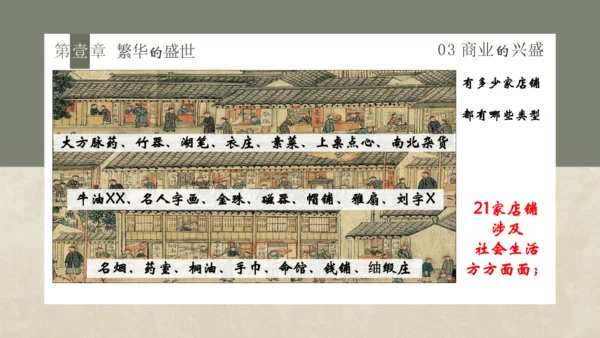 第壹章 繁华的盛世
03 商业的兴盛
有多少家店铺
都有哪些类型
大方脉药、竹器、湖笔、衣庄、素菜、上桌点心、南北杂货
牛油XX、名人字画、金珠、磁器、帽铺、雅扇、刘字X
名烟、药室、桐油、手巾、命馆、钱铺、紬缎庄
21家店铺
涉及
社会生活
方方面面；